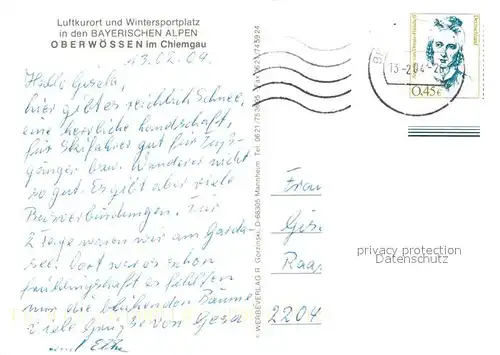 Luftkurort und Wintersportplatz
in den BAYERISCHEN ALPEN
OBERWÖSSEN im Chiemgau
13.02.04
Hallo Gisela,
hier gibt es reichlich Schnee,
eine herrliche Landschaft,
für Skifahrer gut für Fuß-
gänger bzw. Wanderer nicht
so gut. Es gibt aber viele
Busverbindungen. Für
2 Tage waren wir am Garda-
see. Dort war es schon
frühlingshaft es fehlten
nur die blühenden Bäume
Viele Grüße von Gesa
und
© WERBEVERLAG R. Gorzinski, D-68305 Mannheim Tel. 0621/
Fax 0621/743924
13-2.04-
Deutschland
0,45€
Frau
Gise
Raa
2204
privacy protection
Datenschutz